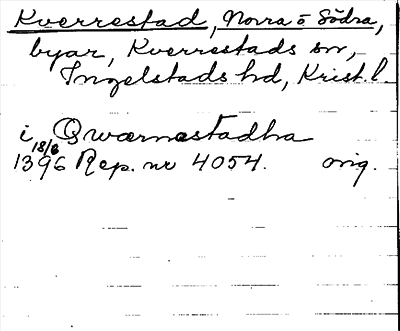 Kverrestad, Norra o Södra,
byar, Kverrestads sn,
Ingelstads hd, Krist. l.
i Qwærnestadha
18/6
1396 Rep. nr 4054. orig.